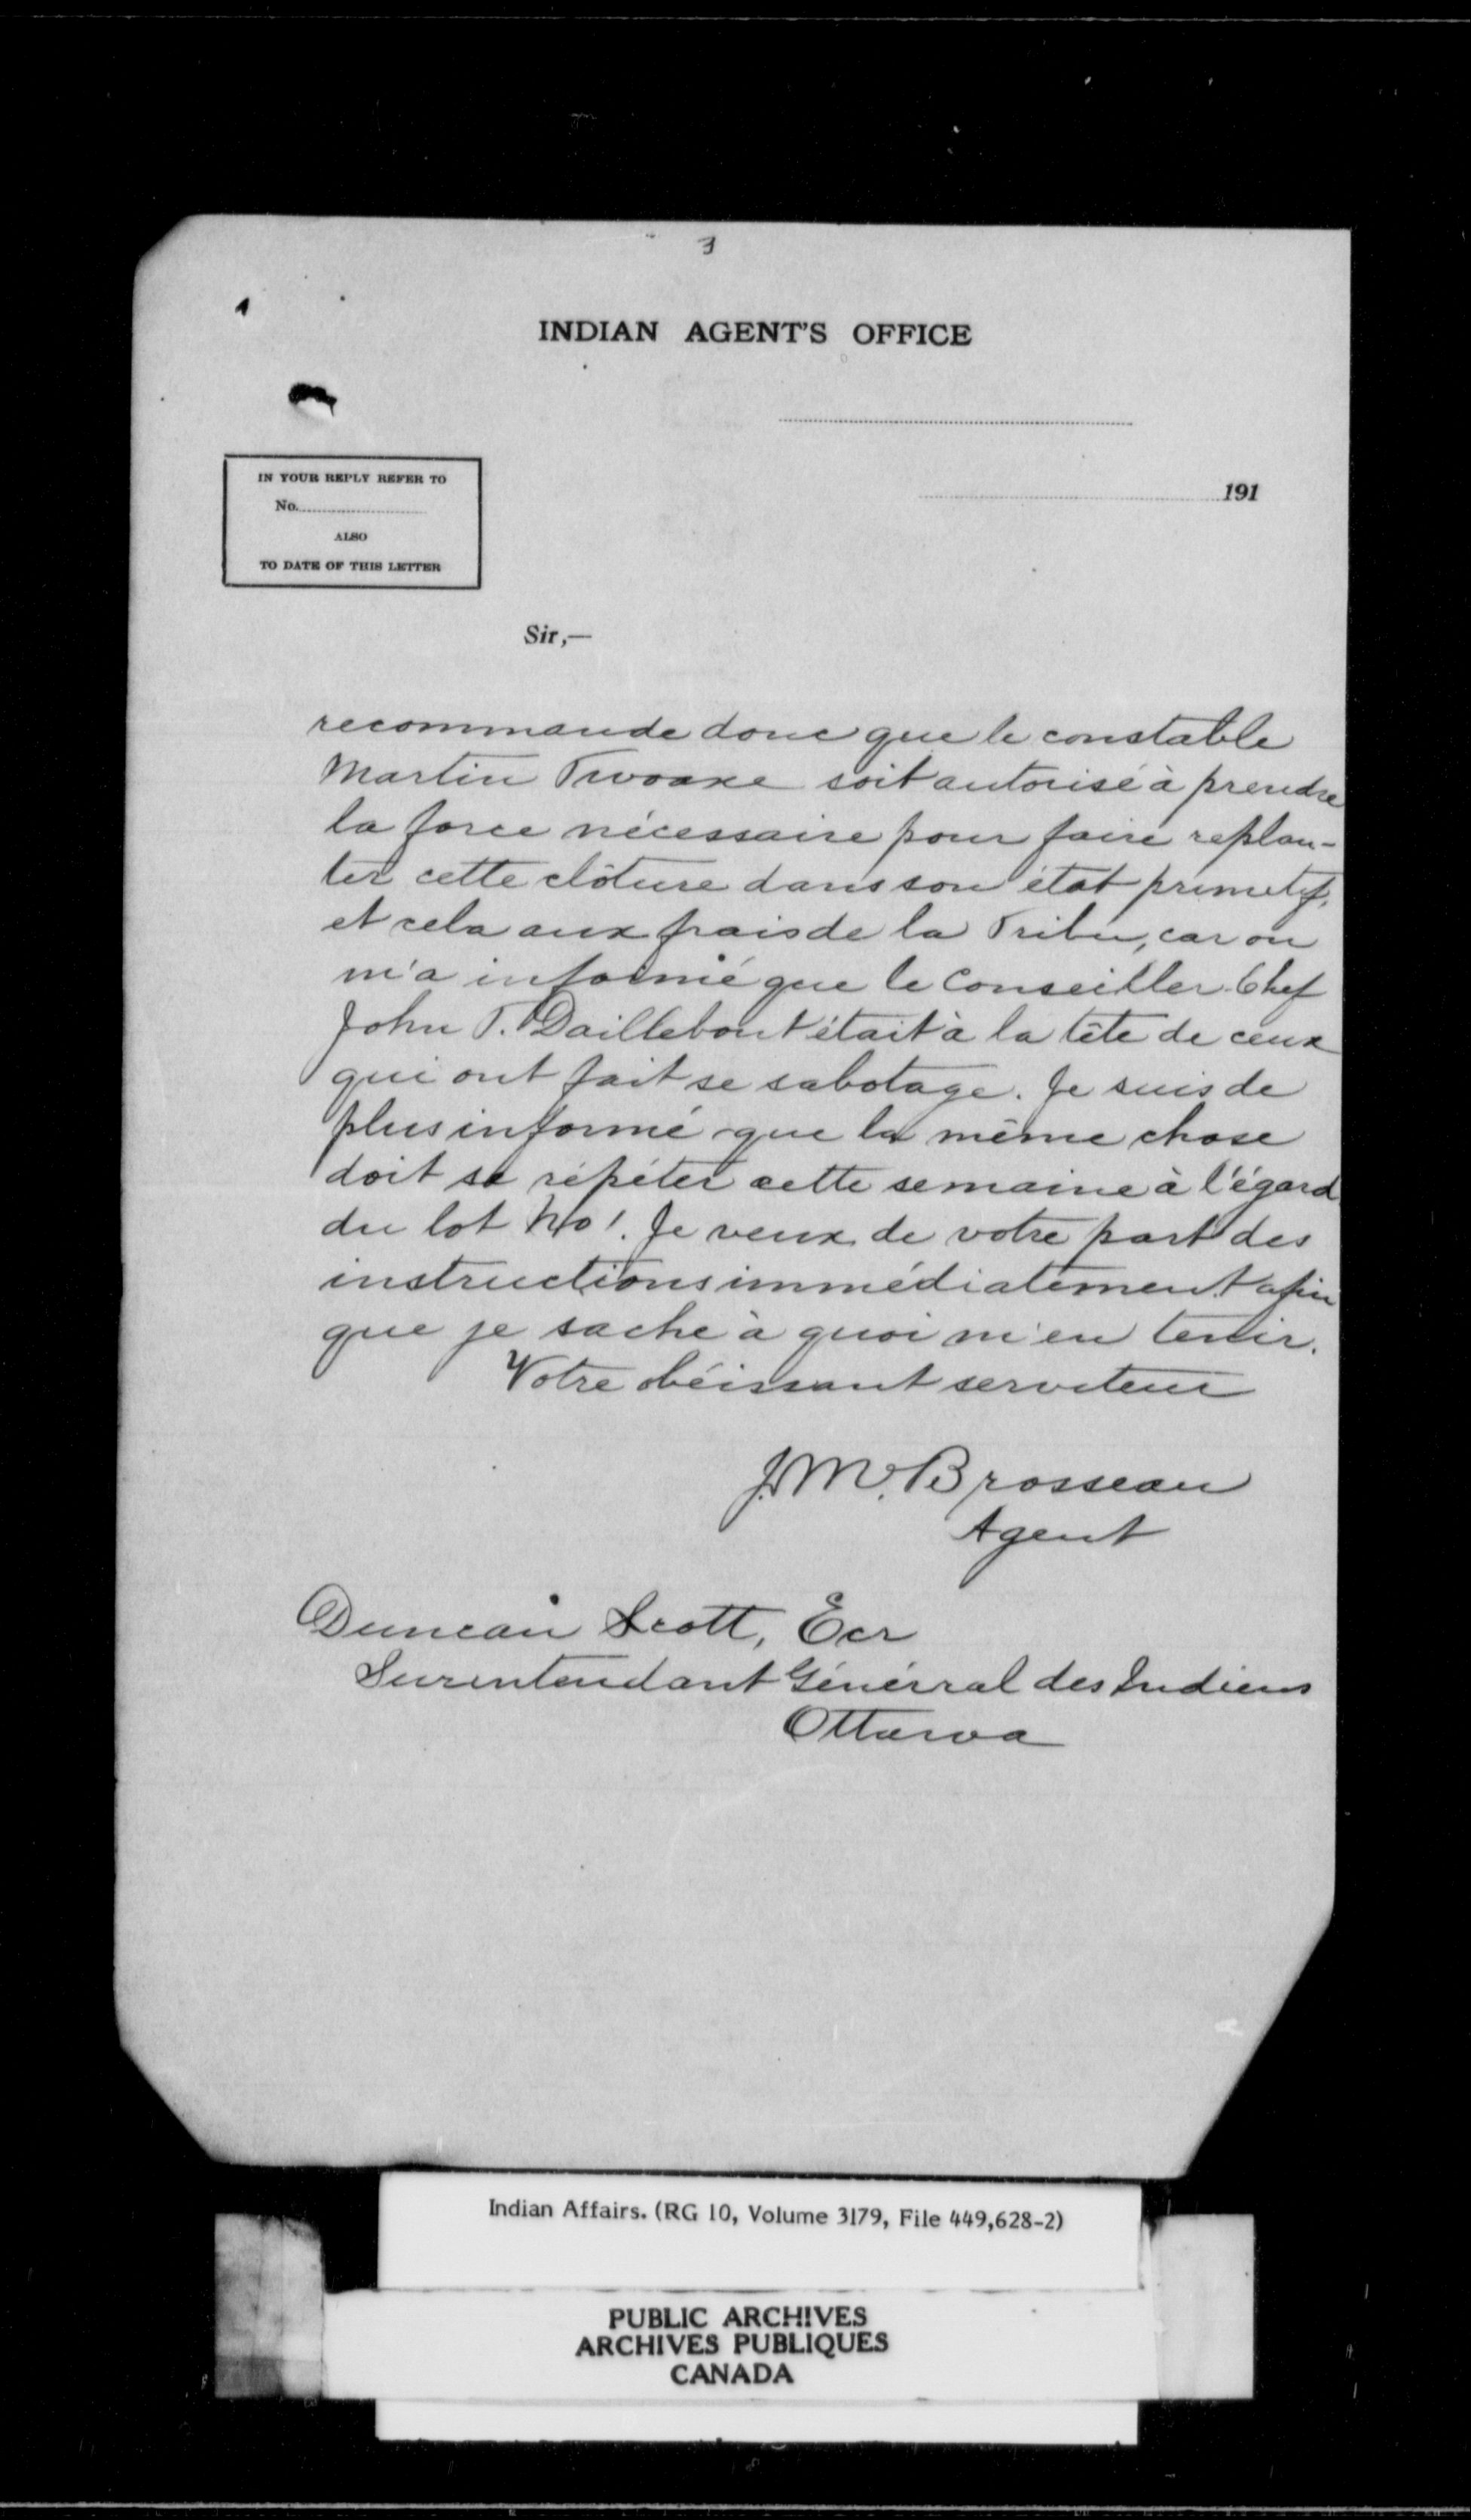 3
INDIAN AGENT'S OFFICE
191
IN YOUR REPLY REFER TO
No.
ALSO
TO DATE OF THIS LETTER
Sir,—
recommande donc que le constable
Martin Twoaxe soit autorisé à prendre
la force nécessaire pour faire replan-
ter cette clôture dans son état primitif,
et cela aux frais de la Tribu, car on
m'a informé que le Conseiller Chef
John T. Daillebout était à la tête de ceux
qui ont fait se sabotage. Je suis de
plus informé que la même chose
doit se répéter cette semaine à l'égard
du lot No 1. Je veux de votre part des
instructions immédiatement afin
que je sache à quoi m'en tenir.
Votre obéissant serviteur
J.M. Brosseau
Agent
Duncan Scott, Ecr
Surintendant Génerral des Indiens
Ottawa
Indian Affairs. (RG 10, Volume 3179, File 449,628-2)
PUBLIC ARCHIVES
ARCHIVES PUBLIQUES
CANADA